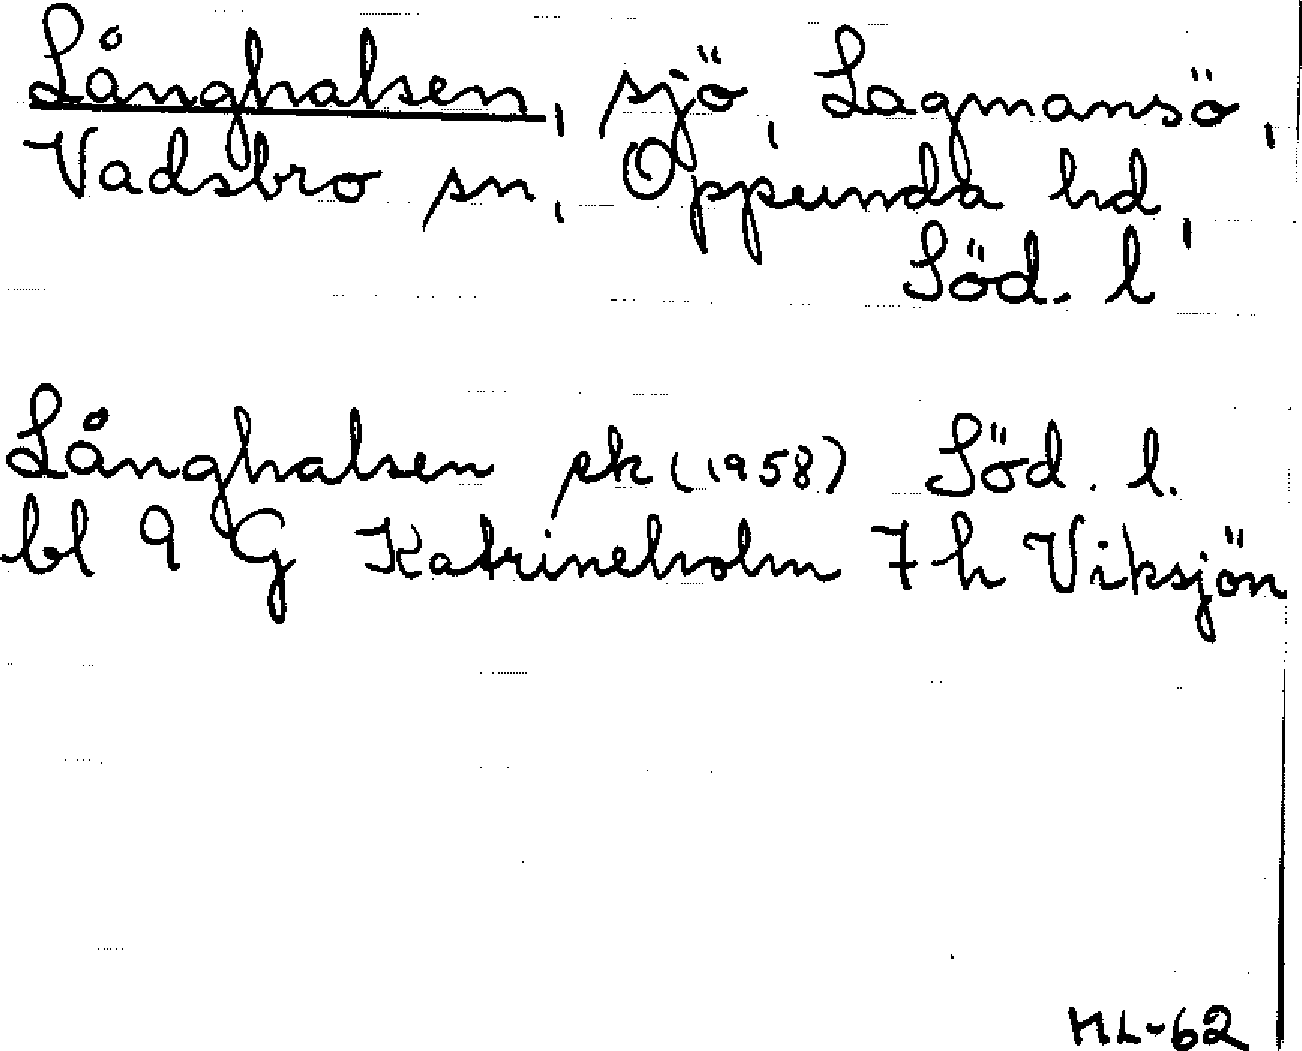 Långhalsen, sjö, Lagmansö,
Vadsbro sn, Oppunda hd,
Söd. l
Långhalsen ek (1958) Söd. l.
bl 9 G Katrineholm 7 h Viksjön
ML-62